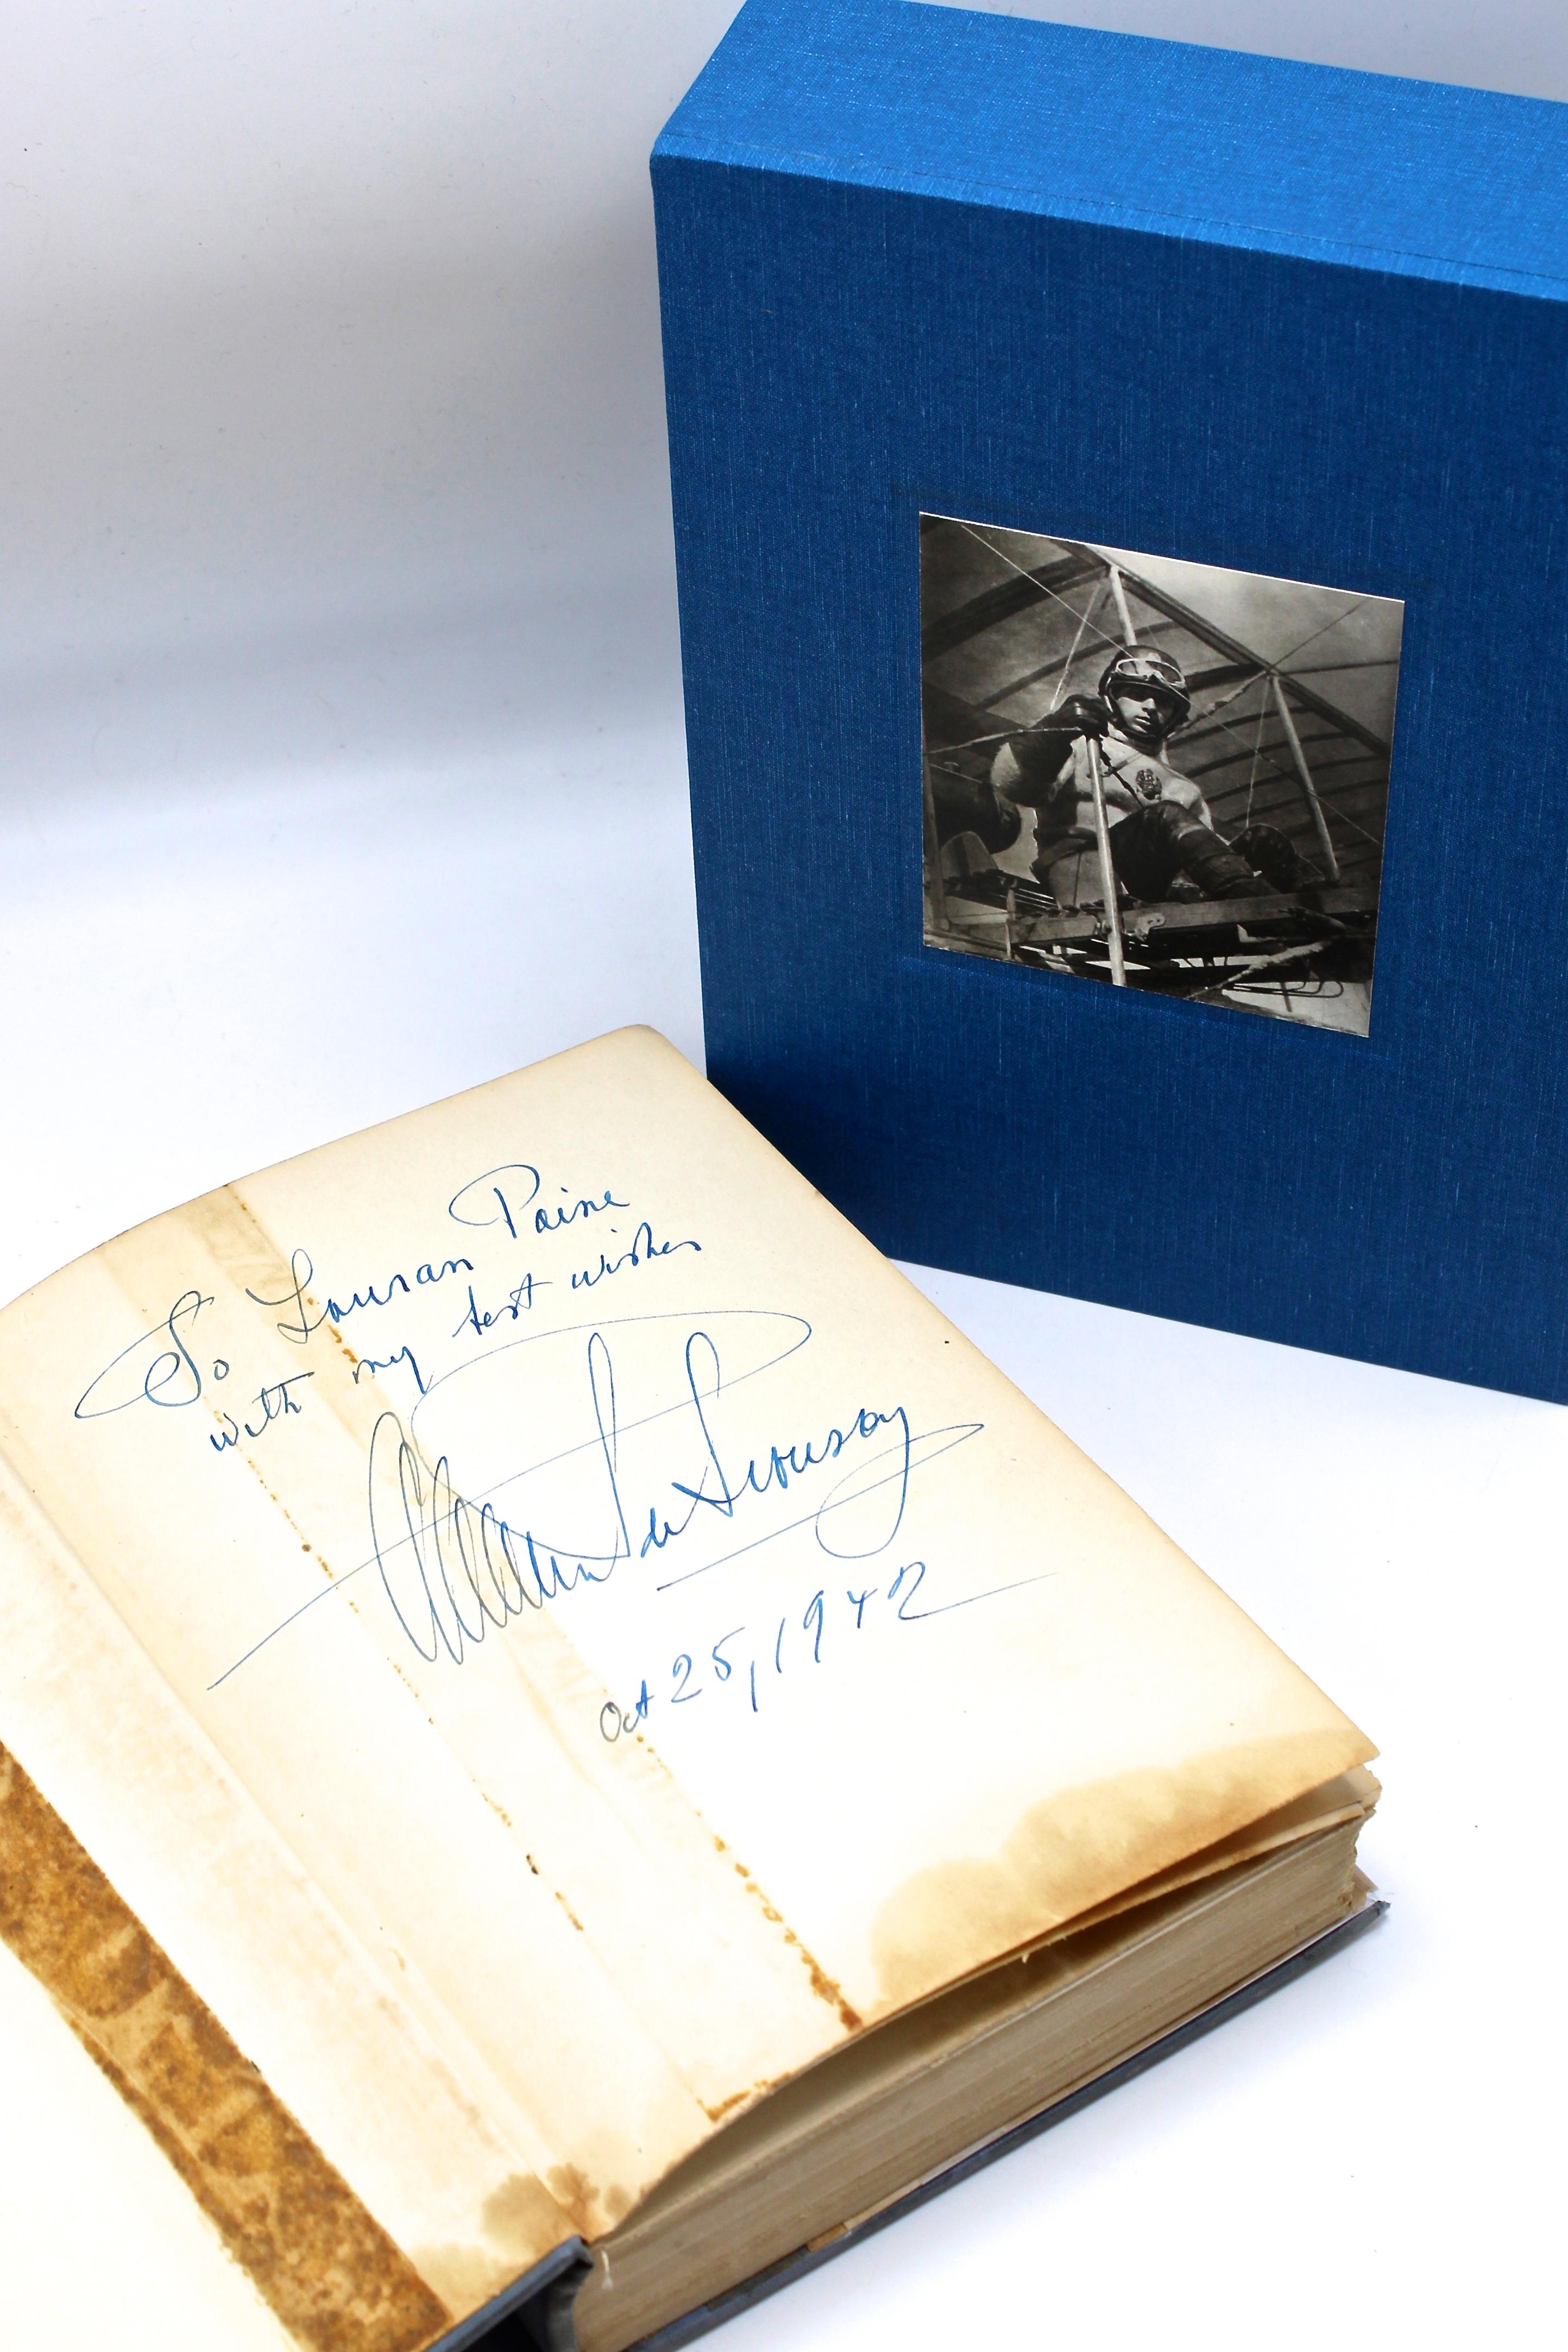 To Lauran Paine
with my best wishes
Alexander P. de Seversky
Oct 25, 1942